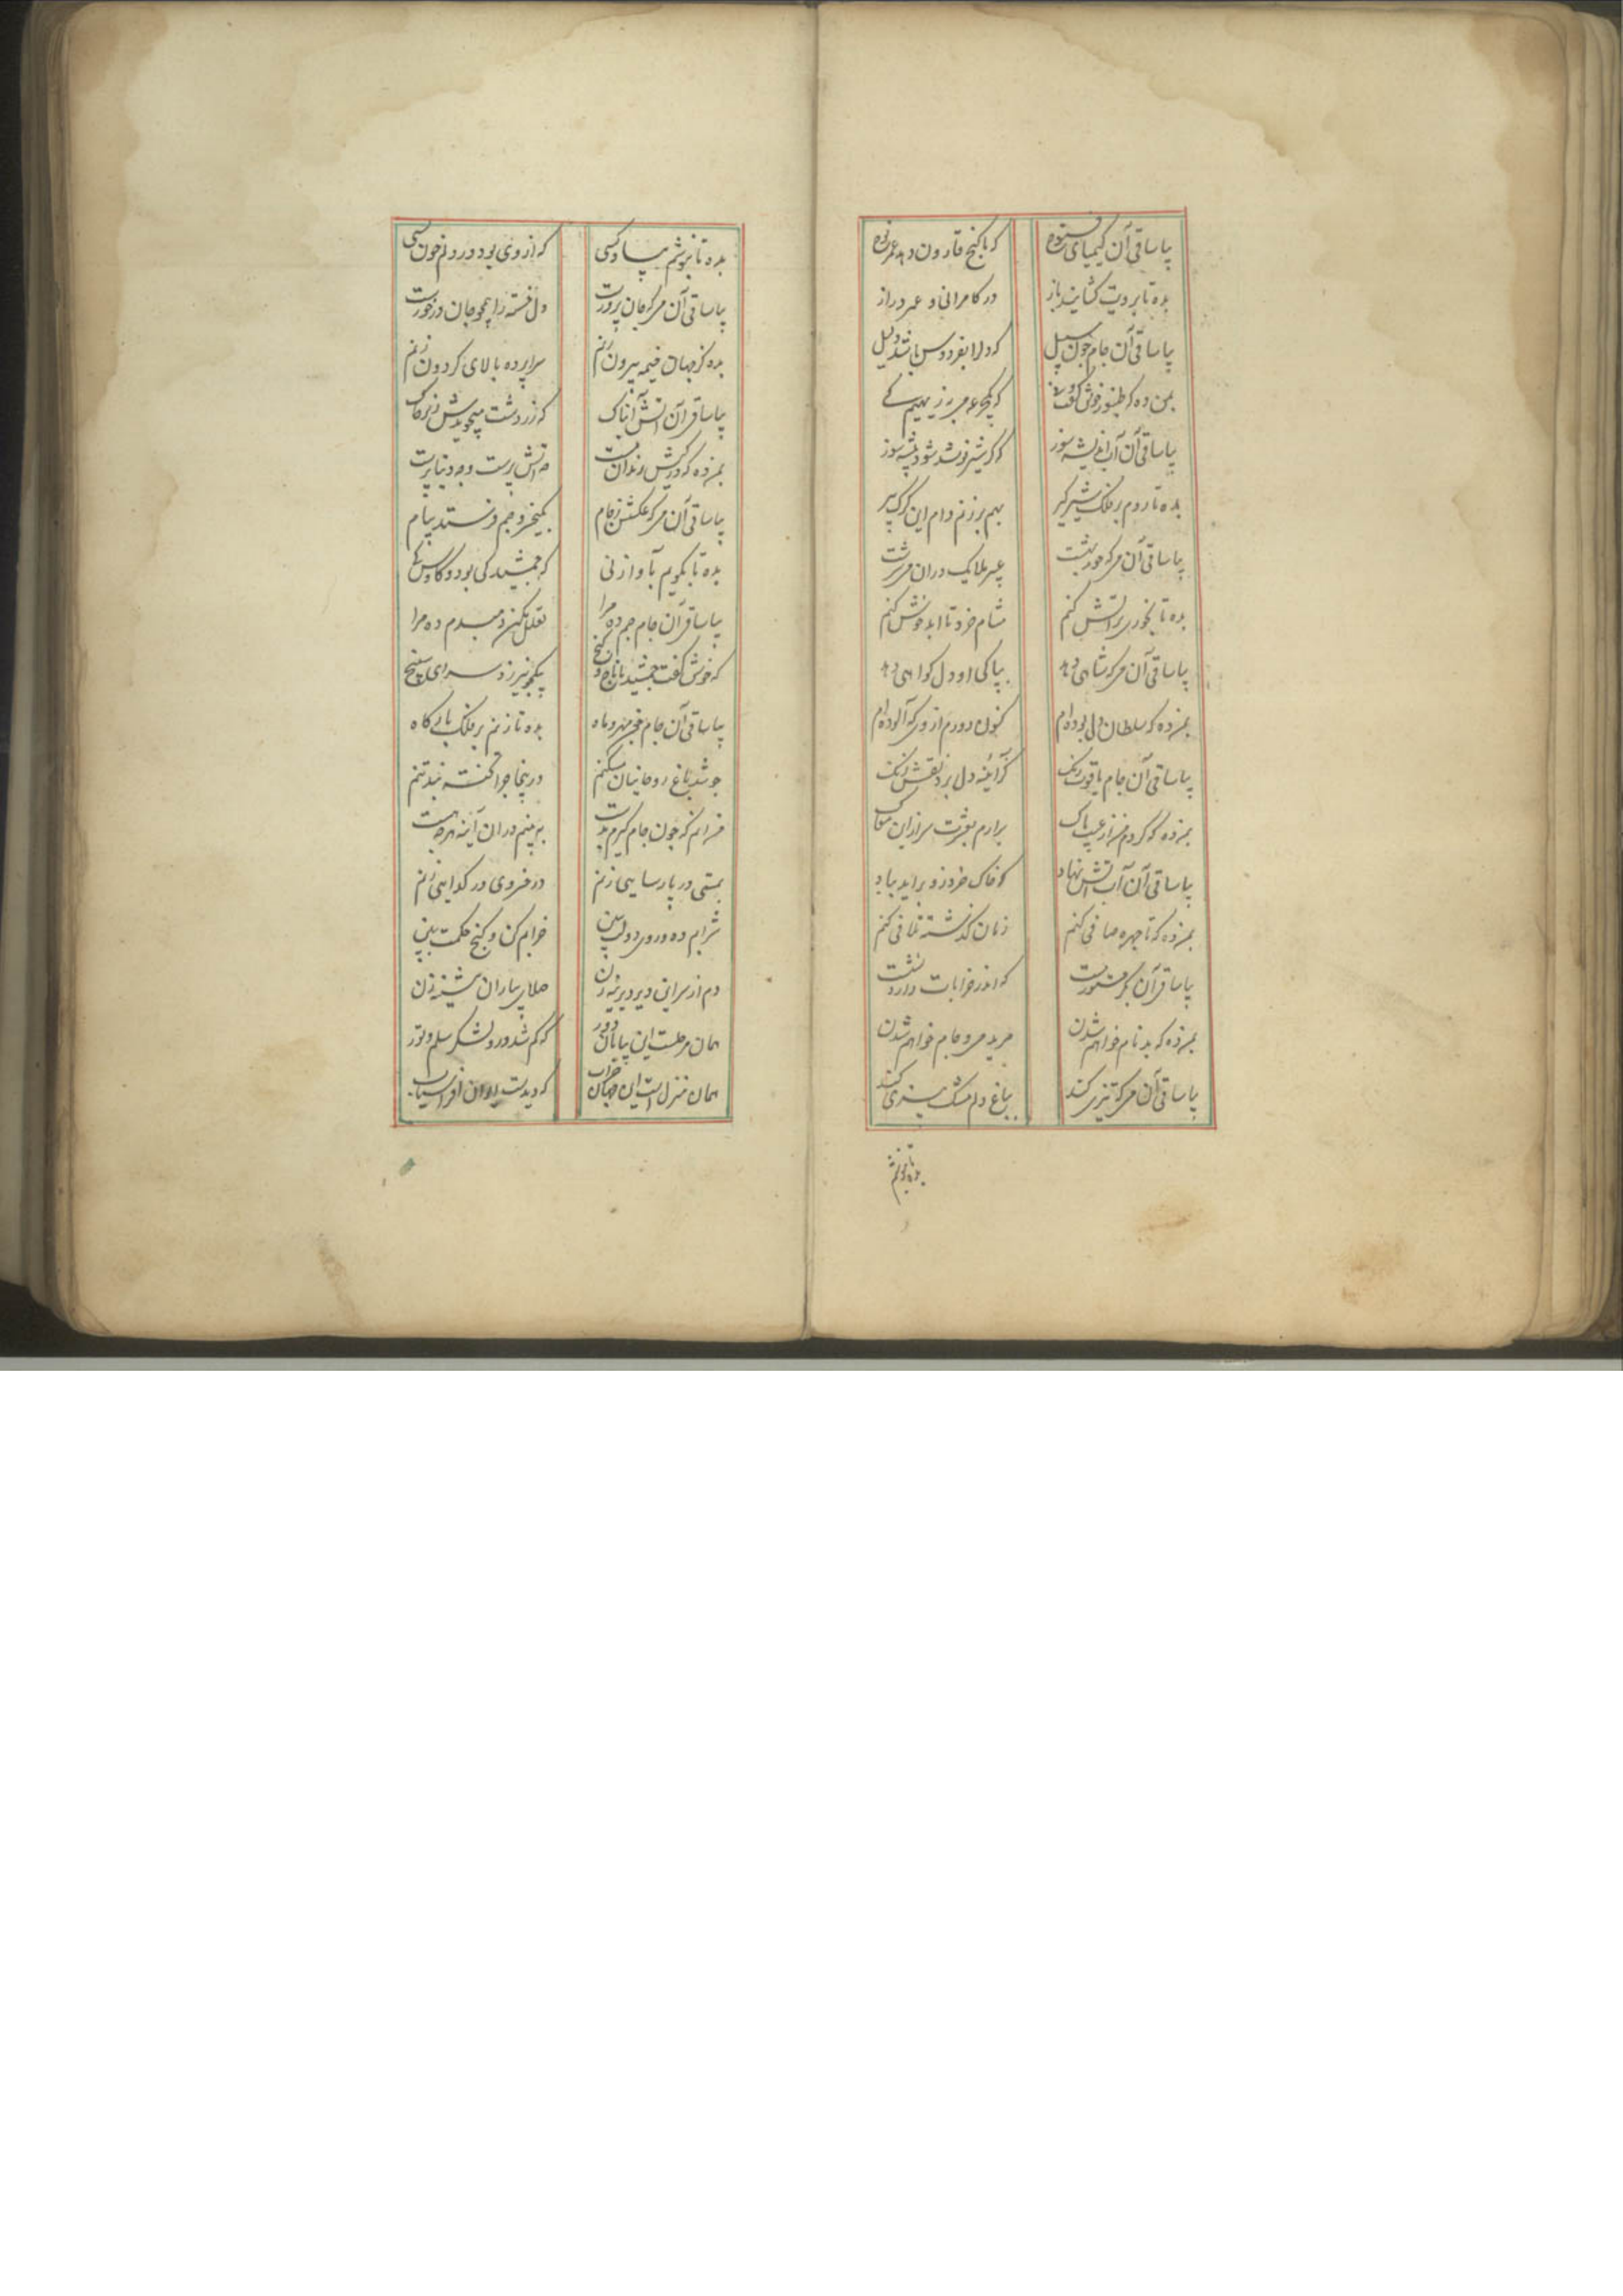 بیا ساقی آن کیمیای فتوح که با کنج قارون دهد عمر نوح
بده تا برویت کشایند باز در کامرانی و عمر دراز
بیا ساقی آن جام چون سلسبیل که دلرا بفردوس باشد دلیل
بمن ده که طنبور خوش کفت و نی که یکجرعه می به ز دیهیم کی
بیا ساقی آن آب اندیشه سوز که کر شیر نوشد شود بیشه سوز
بده تا روم بر فلک شیر کیر بهم بر زنم دام این کرک پیر
بیا ساقی آن می که حور بهشت عبیر ملایک دران می سرشت
بده تا بخوری بر آتش کنم مشام خرد تا ابد خوش کنم
بیا ساقی آن می که شاهی دهد بپاکی او دل کواهی دهد
بمن ده که سلطان دل بوده ام کنون دورم از وی که آلوده ام
بیا ساقی آن جام یاقوت رنک کز آئینه دل برد نقش زنک
بمن ده که کردم از عیب پاک برارم بعشرت سر ازان مغاک
بیا ساقی آن آب آتش نهاد کو خاک خرد زو براید بباد
بمن ده که تا چهره صافی کنم زمان کذشته تلافی کنم
بیا ساقی آن بکر مستور مست که اندر خرابات دارد نشست
بمن ده که بدنام خواهم شدن مرید می و جام خواهم شدن
بیا ساقی آن می که تیزی کند بباغ دلم مشک بیزی کند
بده تا بنوشم
بده تا بنوشم بیاد کسی که از وی بود در دلم خون بسی
بیا ساقی آن می که جان پرورست دل خسته را همچو جان درخورست
بده کز جهان خیمه بیرون زنم سراپرده بالای کردون زنم
بیا ساقی آن آتش تابناک که زردشت میجویدش زیر خاک
بمن ده که در کیش رندان مست چه آتش پرست و چه دنیا پرست
بیا ساقی آن می که عکسش ز جام بکیخسرو و جم فرستد پیام
بده تا بکویم بآواز نی که جمشید کی بود و کاوس کی
بیا ساقی آن جام جم ده مرا تعلل مکن دمبدم ده مرا
که خوش کفت جمشید با تاج و کنج یکجو نیرزد سرای سپنج
بیا ساقی آن جام چون مهر و ماه بده تا زنم بر فلک بارکاه
چو شد باغ روحانیان مسکنم درینجا چرا تخته بند تنم
من انم که چون جام کیرم بدست ببینم دران آینه هرچه هست
بمستی در پارسایی زنم در خسروی در کدایی زنم
شرابم ده و روی دولت ببین خرابم کن و کنج حکمت ببین
دم از سیر این دیر دیرینه زن صلای بیاران پیشینه زن
همان مرحلست این بیابان دور که کم شد درو لشکر سلم و تور
همان منزل است این جهان خراب که دیدست ایوان افراسیاب